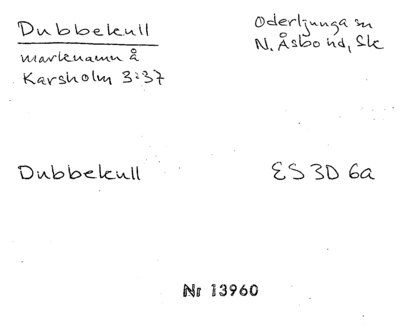 Dubbekull
marknamn å
Karsholm 3:37
Oderljunga sn
N. Åsbo hd, Sk
Dubbekull
ES 3D 6a
Nr 13960